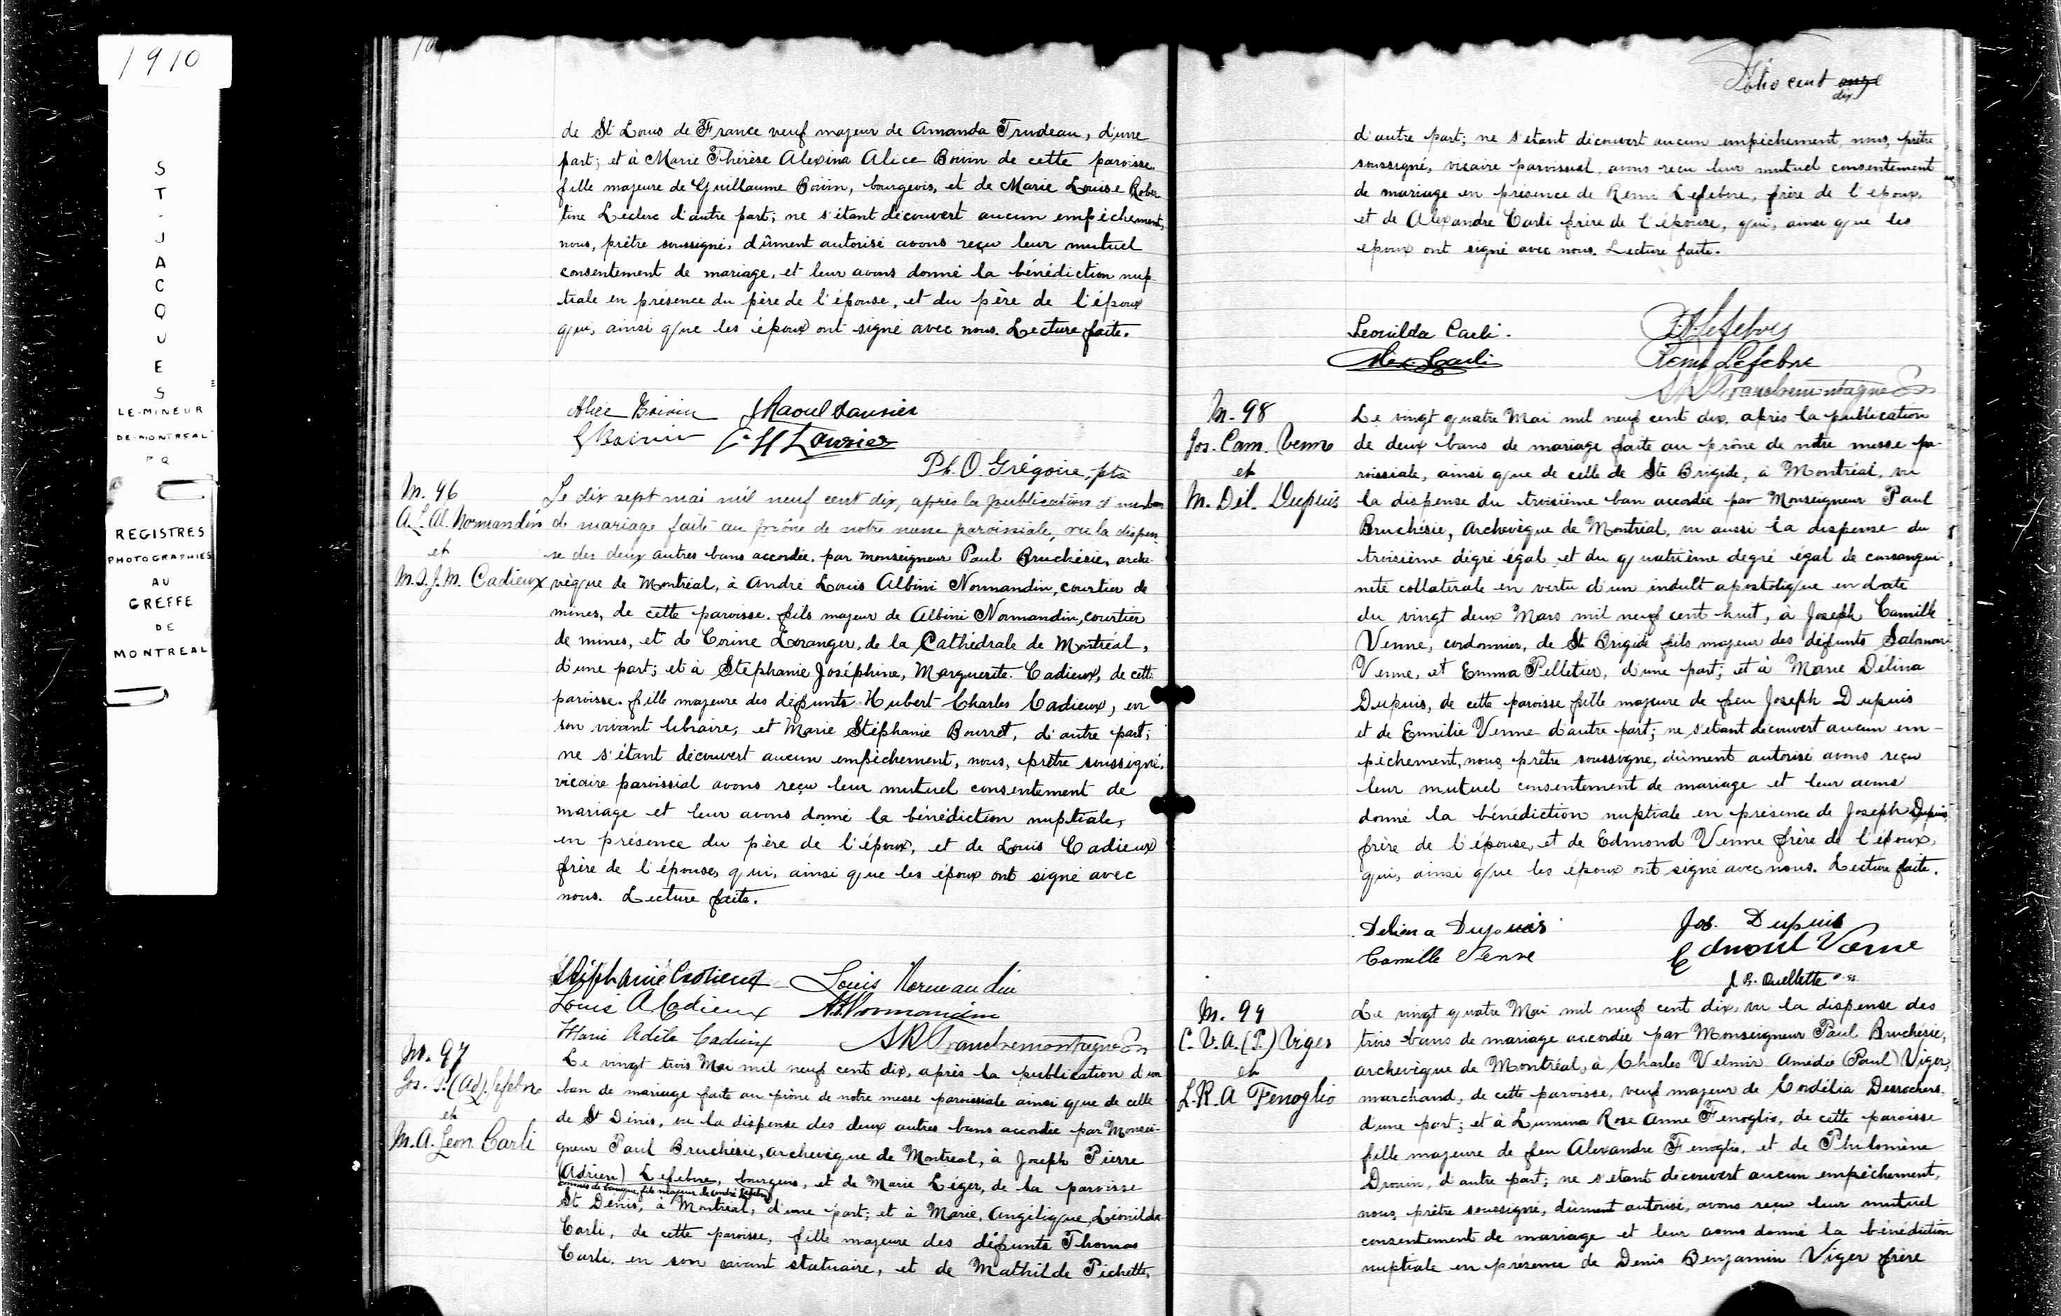 1910
ST-JACQUES
LE-MINEUR
DE-MONTREAL
P Q
REGISTRES
PHOTOGRAPHIES
AU
GREFFE
DE
MONTREAL
de St Louis de France veuf majeur de Amanda Trudeau, d'une
part; et à Marie Thérèse Alexina Alice Boivin de cette paroisse
fille majeure de Guillaume Boivin, bourgeois, et de Marie Louise Rober
tine Leclerc d'autre part; ne s'étant découvert aucun empêchement,
nous, prêtre soussigné, dûment autorisé avons reçu leur mutuel
consentement de mariage, et leur avons donné la bénédiction nup-
tiale en présence du père de l'épouse, et du père de l'époux
qui, ainsi que les époux ont signé avec nous. Lecture faite.
Alice Boivin J Raoul Laurier
G Boivin C H Laurier
Ph. O. Grégoire, ptre
M. 96
A. L. Al. Normandin
et
M. S. J. M. Cadieux
Le dix sept mai mil neuf cent dix, après la publication d'un ban
de mariage faite au prône de notre messe paroissiale, vu la dispen
se des deux autres bans accordée par monseigneur Paul Bruchésie, arche
vêque de Montréal, à André Louis Albini Normandin, courtier de
mines, de cette paroisse, fils majeur de Albini Normandin, courtier
de mines, et de Corine Loranger, de la Cathédrale de Montréal,
d'une part; et à Stephanie Joséphine, Marguerite Cadieux, de cette
paroisse, fille majeure des défunts Hubert Charles Cadieux, en
son vivant libraire, et Marie Stéphanie Bourret, d'autre part;
ne s'étant découvert aucun empêchement, nous, prêtre soussigné,
vicaire paroissial avons reçu leur mutuel consentement de
mariage et leur avons donné la bénédiction nuptiale,
en présence du père de l'époux, et de Louis Cadieux
frère de l'épouse, qui, ainsi que les époux ont signé avec
nous. Lecture faite.
Stéphanie Cadieux Louis Normandin
Louis A Cadieux A. Normandin
Marie Adèle Cadieux
M. 97
Jos. P. (Ad). Lefebvre
et
M. A. Leon. Carli
Le vingt trois Mai mil neuf cent dix, après la publication d'un
ban de mariage faite au prône de notre messe paroissiale ainsi que de celle
de St Dénis, vu la dispense des deux autres bans accordée par Monsei
gneur Paul Bruchésie, archevêque de Montréal, à Joseph Pierre
(Adrien) Lefebvre, bourgeois, et de Marie Léger, de la paroisse
commis de banque, fils majeur de André Lefebvre
St Dénis, à Montréal, d'une part; et à Marie, Angélique, Léonilda
Carli, de cette paroisse, fille majeure des défunts Thomas
Carli, en son vivant statuaire, et de Mathilde Pichette,
Folio cent onze
dix
d'autre part; ne s'étant découvert aucun empêchement, nous, prêtre
soussigné, vicaire paroissial, avons reçu leur mutuel consentement
de mariage en présence de Remi Lefebvre, frère de l'époux,
et de Alexandre Carli frère de l'épouse, qui, ainsi que les
époux ont signé avec nous. Lecture faite.
Leonilda Carli. Lefebvre
Alex. Carli Remi Lefebvre
M. 98
Jos. Cam. Venne
et
M. Dél. Dupuis
Le vingt quatre Mai mil neuf cent dix, après la publication
de deux bans de mariage faite au prône de notre messe pa-
roissiale, ainsi que de celle de Ste Brigide, à Montréal, vu
la dispense du troisième ban accordée par Monseigneur Paul
Bruchésie, Archevêque de Montréal, vu aussi la dispense du
troisième dégré égal et du quatrième degré égal de consangui-
nité collatérale en vertu d'un indult apostolique en date
du vingt deux Mars mil neuf cent huit, à Joseph Camille
Venne, cordonnier, de St Brigide fils majeur des défunts Salomon
Venne, et Emma Pelletier, d'une part; et à Marie Délina
Dupuis, de cette paroisse fille majeure de feu Joseph Dupuis
et de Emilie Venne d'autre part; ne s'étant découvert aucun em-
pêchement, nous, prêtre soussigné, dûment autorisé avons reçu
leur mutuel consentement de mariage et leur avons
donné la bénédiction nuptiale en présence de Joseph Dupuis
frère de l'épouse, et de Edmond Venne frère de l'époux,
qui, ainsi que les époux ont signé avec nous. Lecture faite.
Delima Dupuis Jos. Dupuis
Camille Venne Edmond Venne
J. B. Ouellette
M. 99
C. V. A. (P.) Viger
et
L. R. A Fenoglio
Le vingt quatre Mai mil neuf cent dix, vu la dispense des
trois bans de mariage accordée par Monseigneur Paul Bruchésie,
archevêque de Montréal, à Charles Velmir Amédée (Paul) Viger,
marchand, de cette paroisse, veuf majeur de Cordélia Desrochers
d'une part; et à Lumina Rose Anne Fenoglio, de cette paroisse
fille majeure de feu Alexandre Fenoglio, et de Philomène
Drouin, d'autre part; ne s'étant découvert aucun empêchement,
nous, prêtre soussigné, dûment autorisé, avons reçu leur mutuel
consentement de mariage et leur avons donné la bénédiction
nuptiale en présence de Denis Benjamin Viger frère